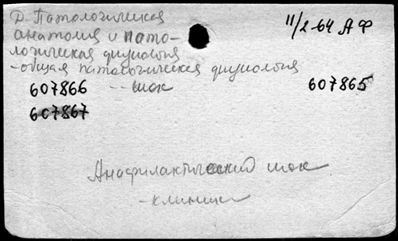 Д. Патологическая 11/2-64 АФ
анатомия и пато-
логическая физиология
-общая патологическая физиология
607866 -- шок 607865
607867
Анафилактический шок
-клиника